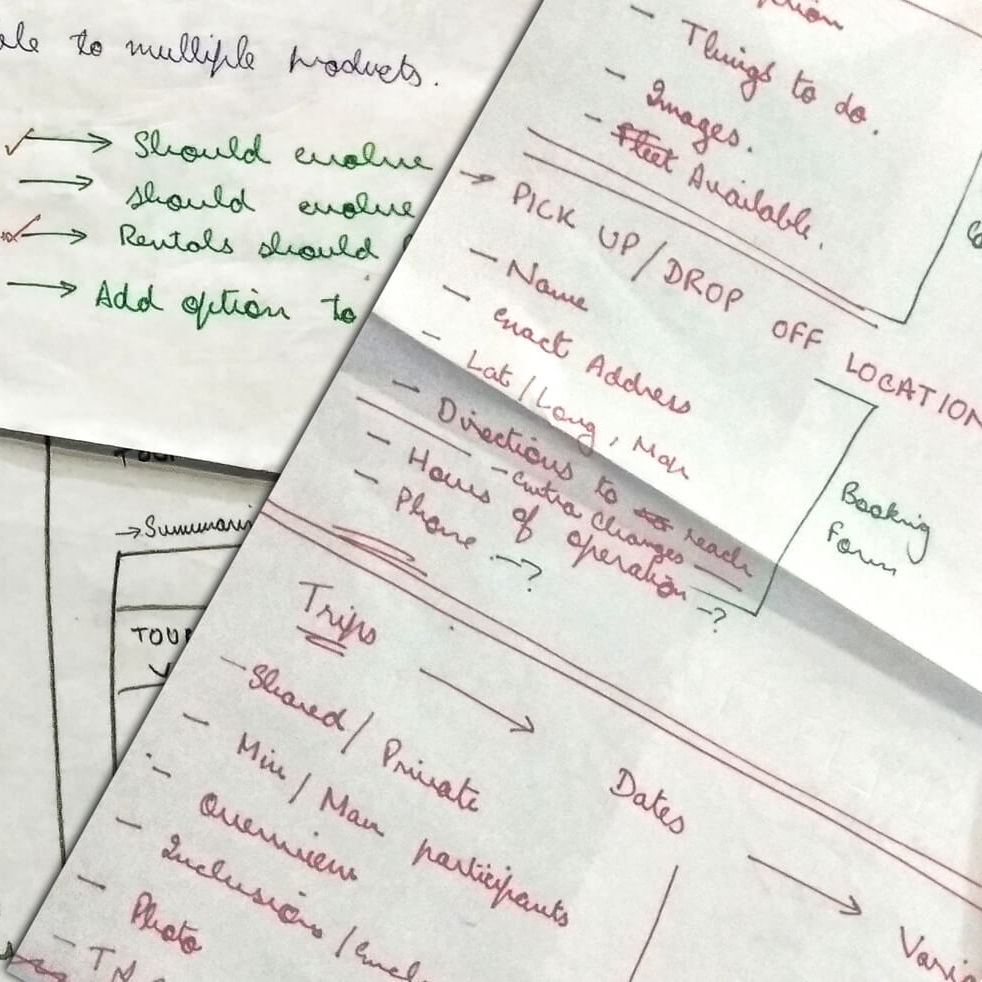 to multiple products.
→ Should evolve
→ should evolve
→ Rentals should
→ Add option to
→ Summari
TOUR
- Things to do.
- Images.
- Fleet Available.
→ PICK UP / DROP OFF LOCATION
- Name
- Exact Address
- Lat / Long, Map
- Directions to reach
- Extra Charges
- Hours of operation -?
- Phone -?
Booking
Form
Trips → Dates →
- Shared / Private
- Min / Max participants
- Overview
- Inclusions / Excl
- Photo